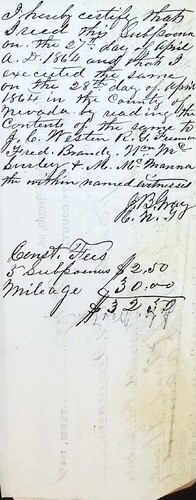 I hereby certify that
I recd this Subpoena
on the 27th day of April
A.D. 1864 and that I
executed the same
on the 28th day of April
1864 in the County of
Nevada by reading the
Contents of the same to
J. C. Weston R. C. Freeman
Fred. Brandt, Wm Mc
& M. McManna
the within named witnesses
J B Gray
Const. Fees
5 Subpoenas $2.50
Mileage 30.00
$32.50